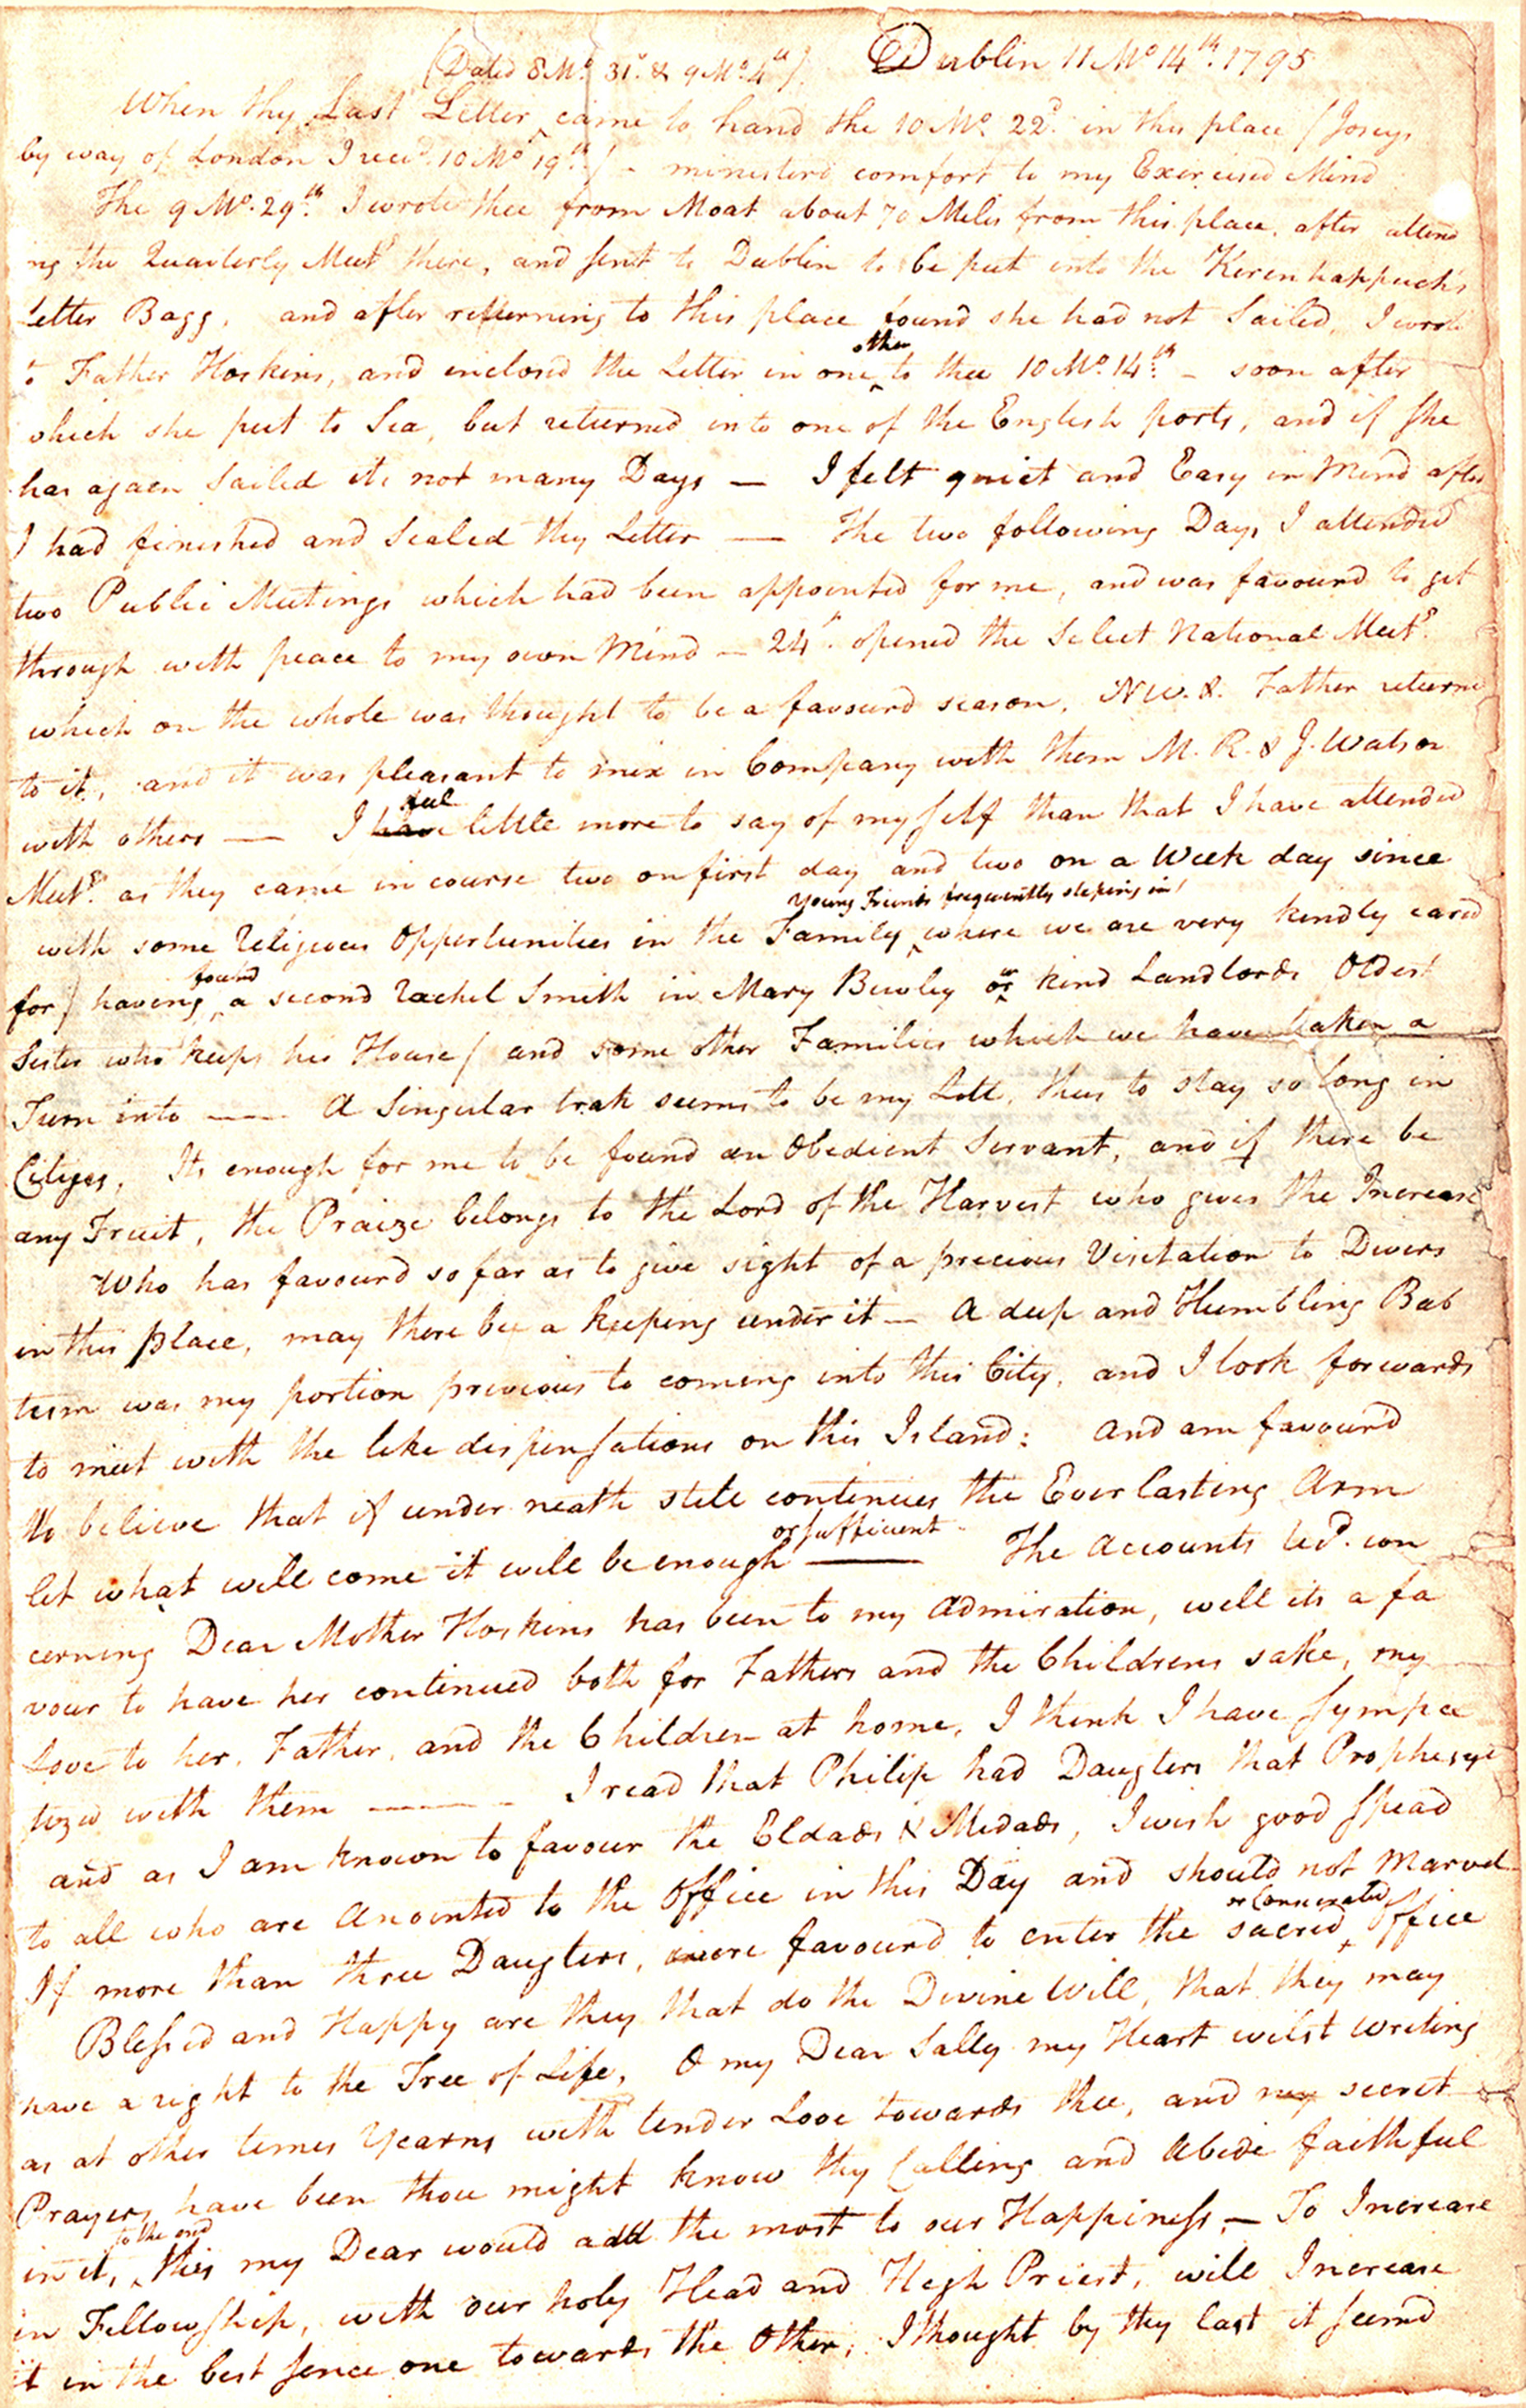 Dublin 11 Mo 14th. 1795
(Dated 8 Mo. 31st. & 9 Mo. 4th)
When thy Last Letter ^ came to hand the 10 Mo. 22d. in this place (Joseys
by way of London I recd. 10 Mo 19th.) - ministerd comfort to my Exercised Mind
The 9 Mo. 29th. I wrote thee from Moat about 70 Miles from this place, after attend
ng the Quarterly Meetg there, and sent to Dublin to be put into the Kerenhappuch's
Letter Bagg, and after returning to this place found she had not Sailed, I wrote
to Father Hoskins, and inclosed the Letter in one ^other to thee 10 Mo. 14th. - soon after
which she put to Sea, but returned into one of the English ports, and if she
has again Sailed its not many Days — I felt quiet and Easy in Mind after
I had finished and Sealed thy Letter — The two following Days I attended
two Public Meetings which had been appointed for me, and was favourd to get
through with peace to my own Mind — 24th. opened the Select National Meetg.
which on the whole was thought to be a favourd season, NW. & Father returnd
to it, and it was pleasant to mix in Company with them M. R. & J. Watson
with others — I have feel little more to say of my self than that I have attended
Meetgs. as they came in course two on first day and two on a Week day since
with some religious Opportunities in the Family ^ young Friends frequently steping in/ where we are very kindly cared
for / having ^found a second Rachel Smith in Mary Bewley or kind Landlords Oldest
Sister who keeps his House / and some other Families which we have taken a
Turn into — A Singular trak seems to be my Lott, thus to stay so long in
Cityes, Its enough for me to be found an Obedient Servant, and if there be
any Fruit, the Praize belongs to the Lord of the Harvest who gives the Increase
Who has favourd so far as to give sight of a precious Visitation to Divers
in this place, may there be a keeping under it — A deep and Humbling Bab
tism was my portion previous to coming into this City, and I look forwards
to meet with the like dispensations on this Island: and am favour'd
to believe that if under neath stile continues the Everlasting Arm
let what will come it will be enough or sufficient — The Accounts recd. con
cerning Dear Mother Hoskins has been to my Admiration, well its a fa
vour to have her continued both for Fathers and the Childrens sake, my
Love to her, Father, and the Children at home, I think I have sympa
tized with them — I read that Philip had Daughters that Prophesyed
and as I am known to favour the Eldads & Medads, I wish good spead
to all who are Anointed to the Office in this Day and should not Marvel
If more than three Daugters, were favourd to enter the sacred ^or Consecrated Office
Blessed and Happy are they that do the Divine Will, that they may
have a right to the Tree of Life, O my Dear Sally my Heart wilst writing
as at other times Yearns with tender Love towards thee, and my secret
Prayers have been thou might know thy Calling and Abide faithful
in it, ^to the end this my Dear would add the most to our Happiness, — To Increase
in Fellowship, with our holy Head and High Priest, will Increase
it in the best sence one towards the Other, I thought by thy last it seemd